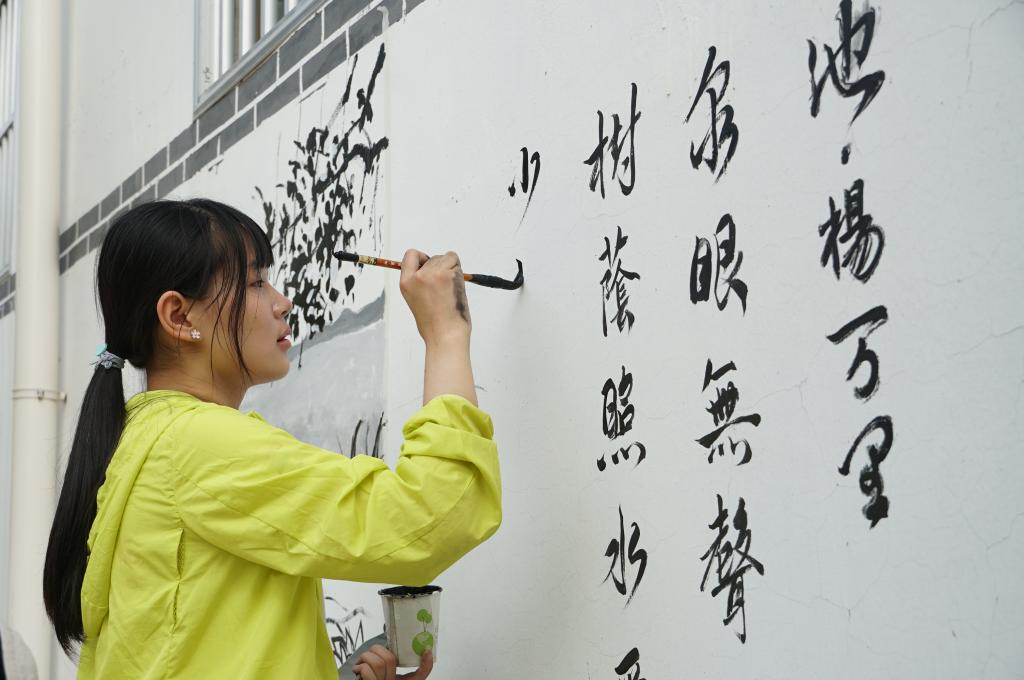 池·楊万里
泉眼無聲
樹蔭照水
小